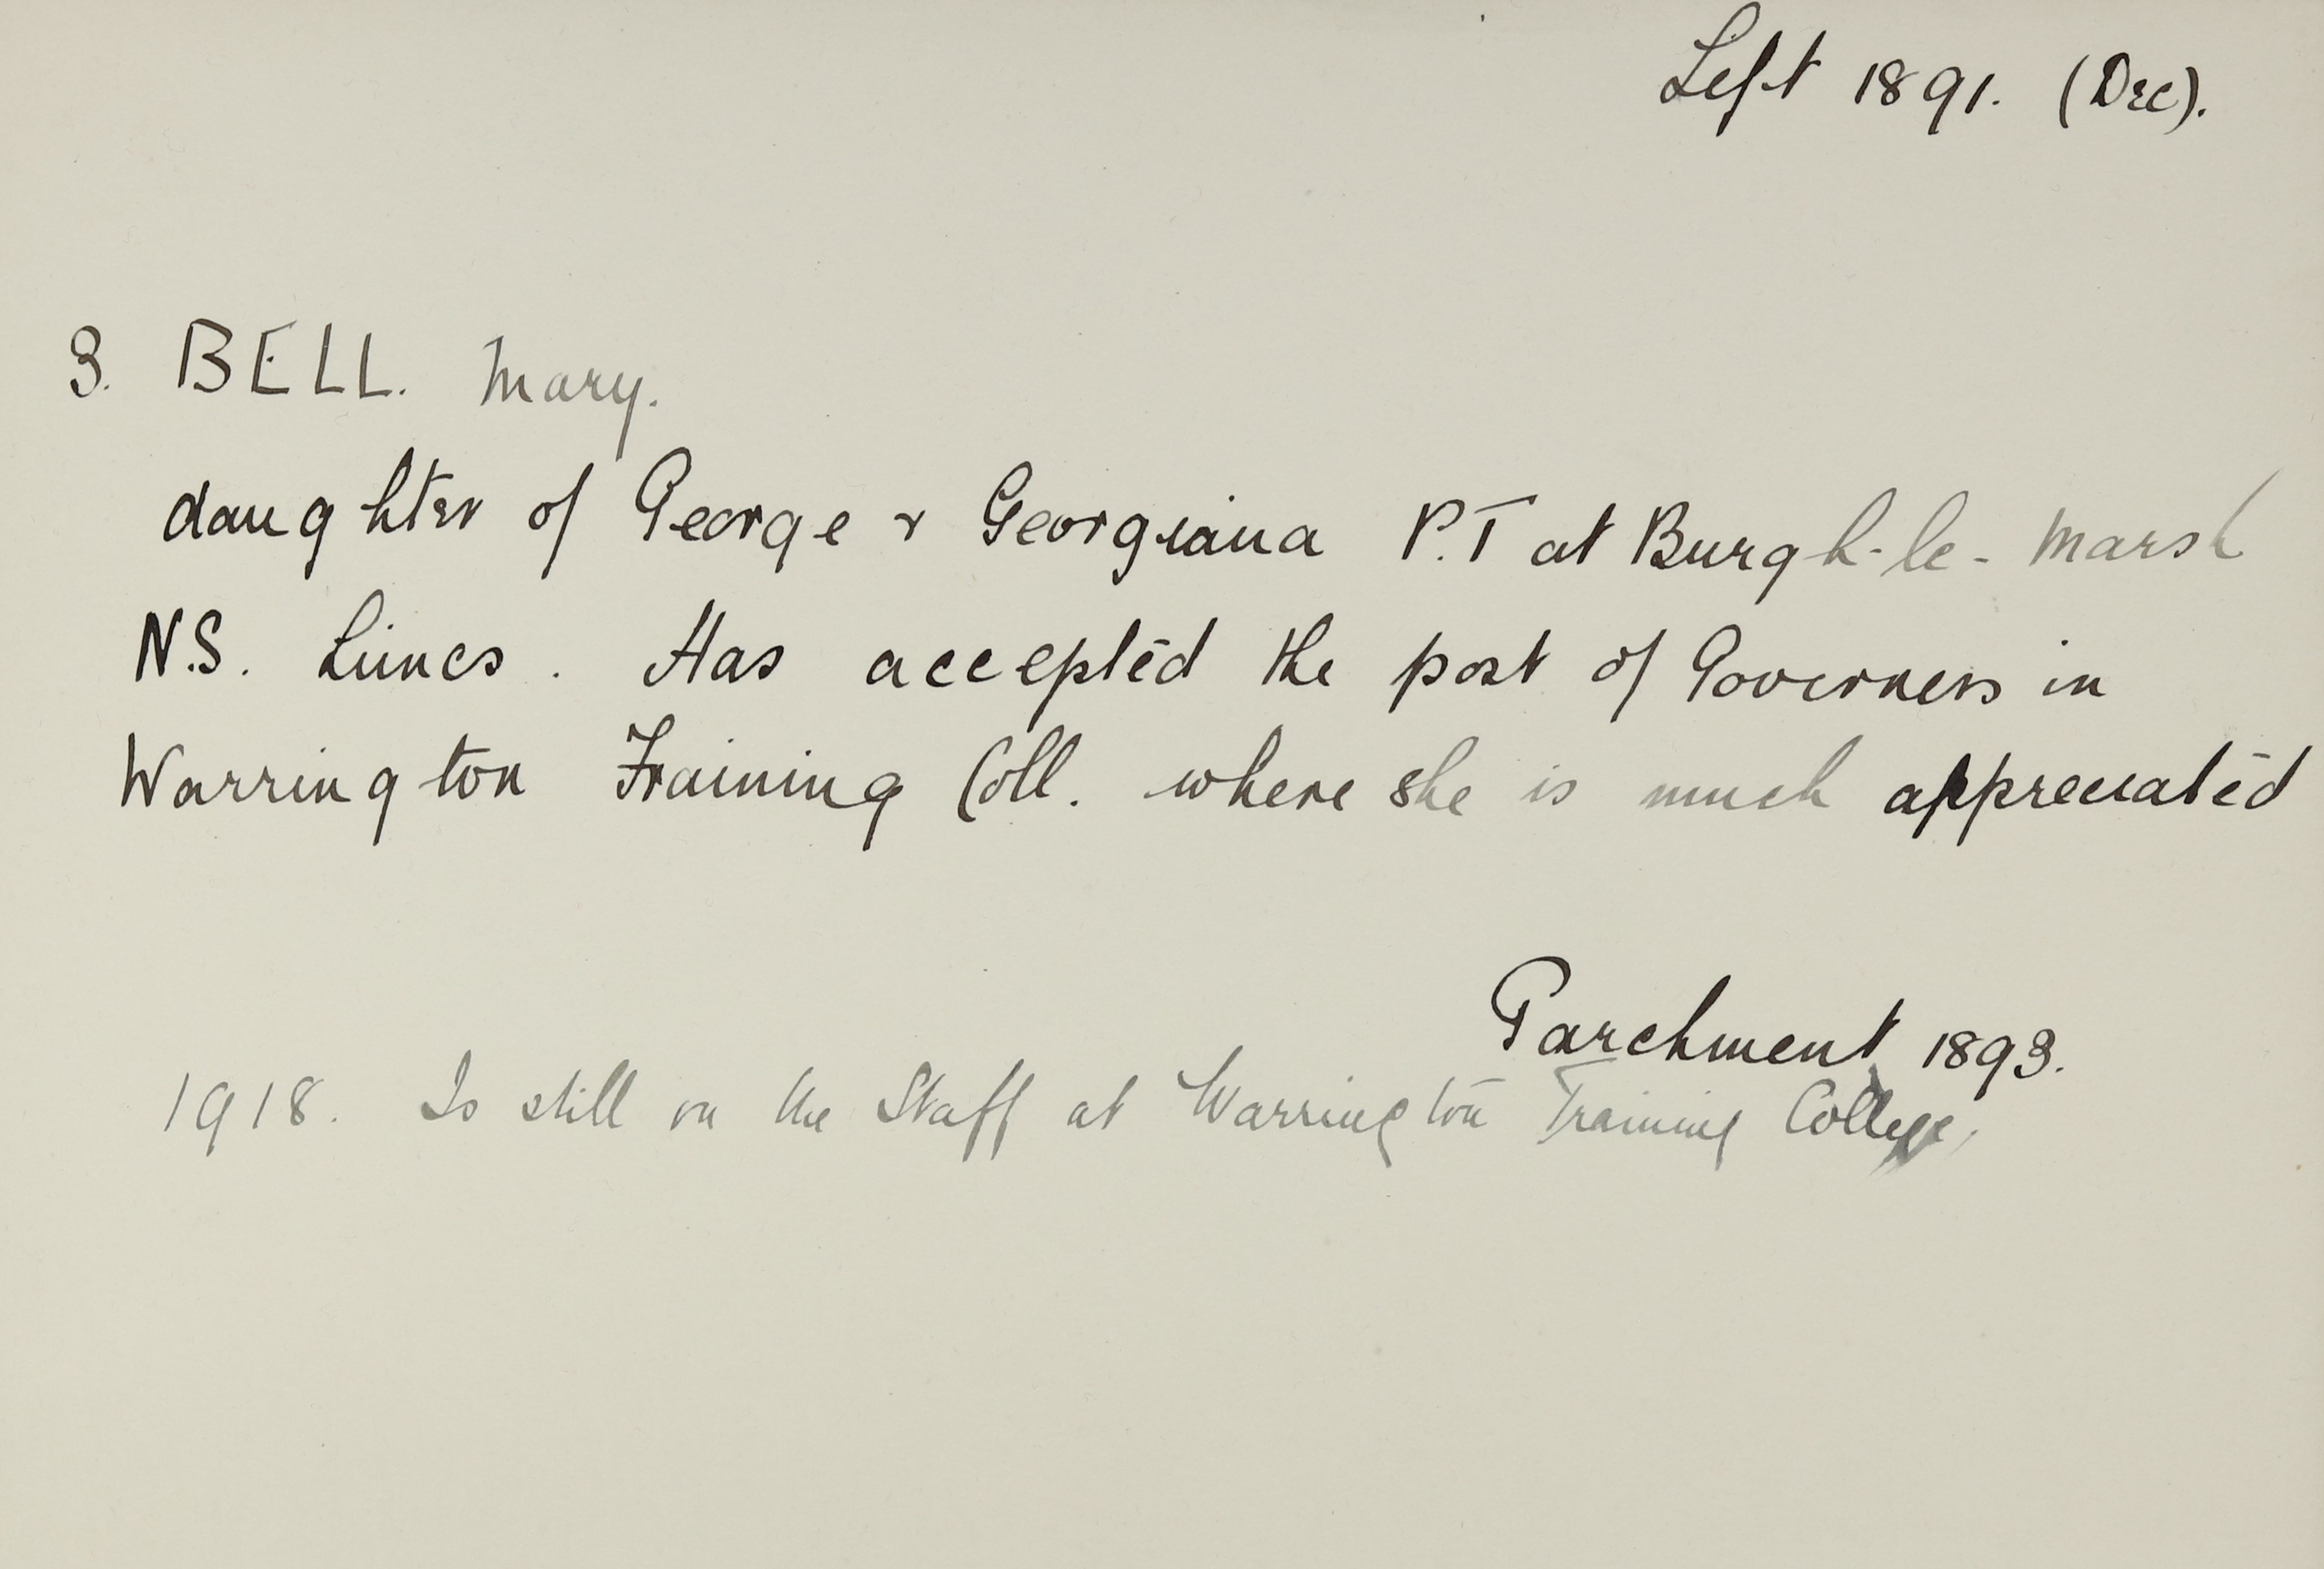 Left 1891. (Dec).
3. BELL. Mary.
daughter of George & Georgiana P.T at Burgh-le-Marsh
N.S. Lincs. Has accepted the post of Governess in
Warrington Training Coll. where she is much appreciated
Parchment 1893.
1918. Is still on the Staff at Warrington Training College,